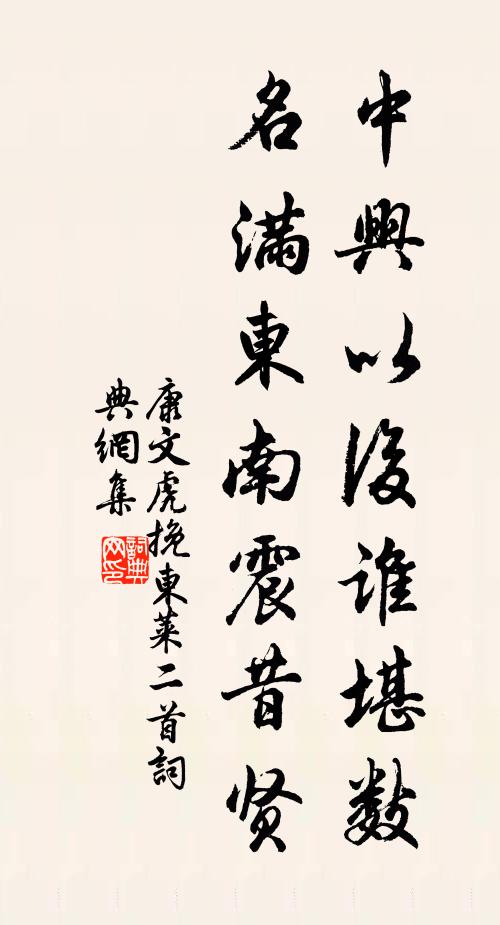 中興以後誰堪數
名滿東南震昔贤
康文虎挽東萊二首詞
典網集
詞典网印